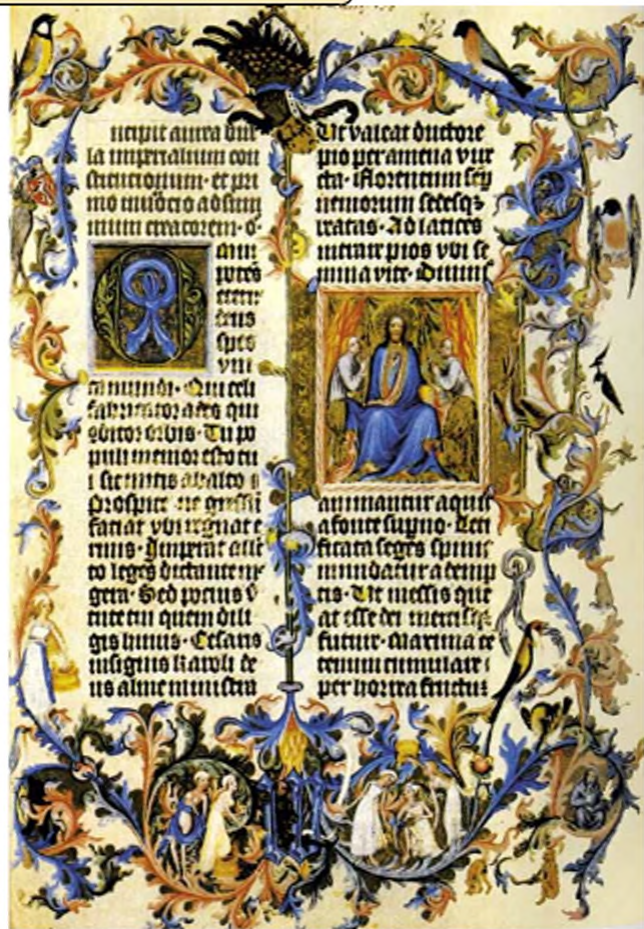 incipit aurea bul
la imperialium con
stitucionum · et pri
mo inuocacio ad sum
mum creatorem · o
mni
potes
eterne
deus
spes
vni
ca mundi · Qui celi
fabricator ades qui
conditor orbis · Tu po
puli memor esto tu
i sic mitis ab alto
Prospice · ne gressum
faciat vbi regnat e
rinis · Imperat alle
to leges dictante me
gera · Sed pocius
tute tui quem dili
gis huius · Cesaris
insignis karoli de
us alme ministra
Ut valeat ductore
pio per amena vire
cta · florentum sep
nemorum sedesqz
beatas · Ad latices
intrare pios vbi se
mina vite · Diuinis
animantur aquis
a fonte superno · Leti
ficata seges spinis
mundatur ademp
tis · Ut messis que
at esse dei mercisqz
future · Maxima ce
tenum cumulare
per horrea fructus